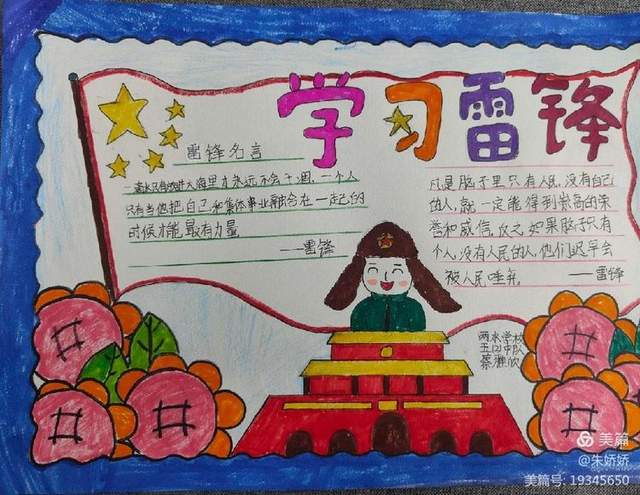 学习雷锋
雷锋名言
一滴水只有放进大海里才永远不会干涸，一个人
只有当他把自己和集体事业融合在一起的
时候才能最有力量
——雷锋
凡是脑子里只有人民，没有自己
的人，就一定能得到崇高的荣
誉和威信，反之，如果脑子只有
个人，没有人民的人，他们迟早会
被人民唾弃。
——雷锋
两水学校
五(2)中队
美篇
@朱娇娇
美篇号: 19345650